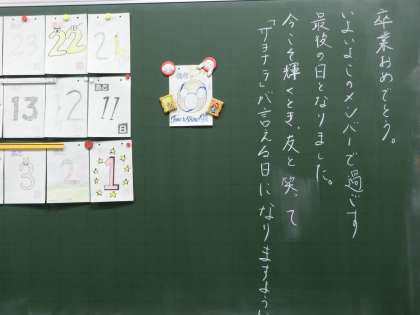 卒業おめでとう。
いよいよこのメンバーで過ごす
最後の日となりました。
今こそ輝くとき、友と笑って
「サヨナラ」が言える日になりますよう
23
22
21
13
2
あと
11
日
3
2
1
0